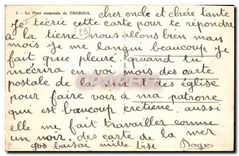 5 - Le Pont suspendu de TREBOUL
cher onde et chère tante
je técrie cette carte pour te répondre
à la tiene nous allons bien mais
mois je me langui beaucoup je
fait que pleuré quand tu
mécrira en voi mois des carte
postale de la et des église
pour faire voir à ma patrone
qui est beaucoup cretiene aussi
elle me fait travailler comme
un noir des carte de la mer
gos baisai mille bise
Roger